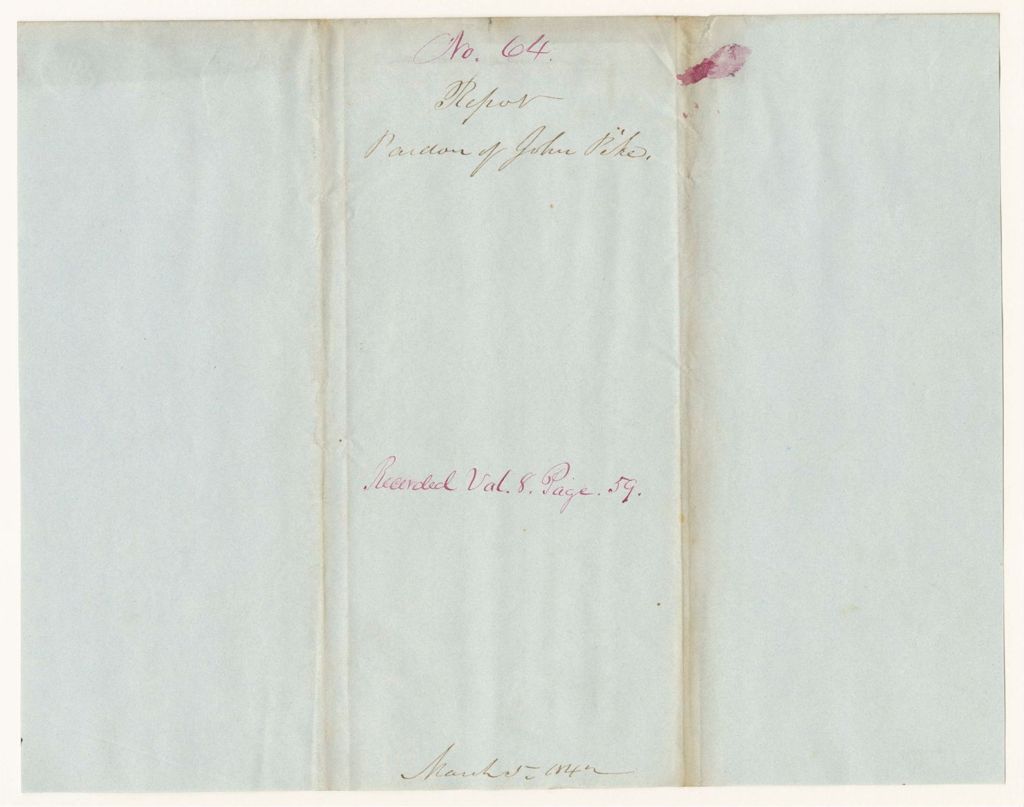 No. 64.
Report
Pardon of John Pike.
Recorded Vol. 8. Page. 59.
March 5, 1842